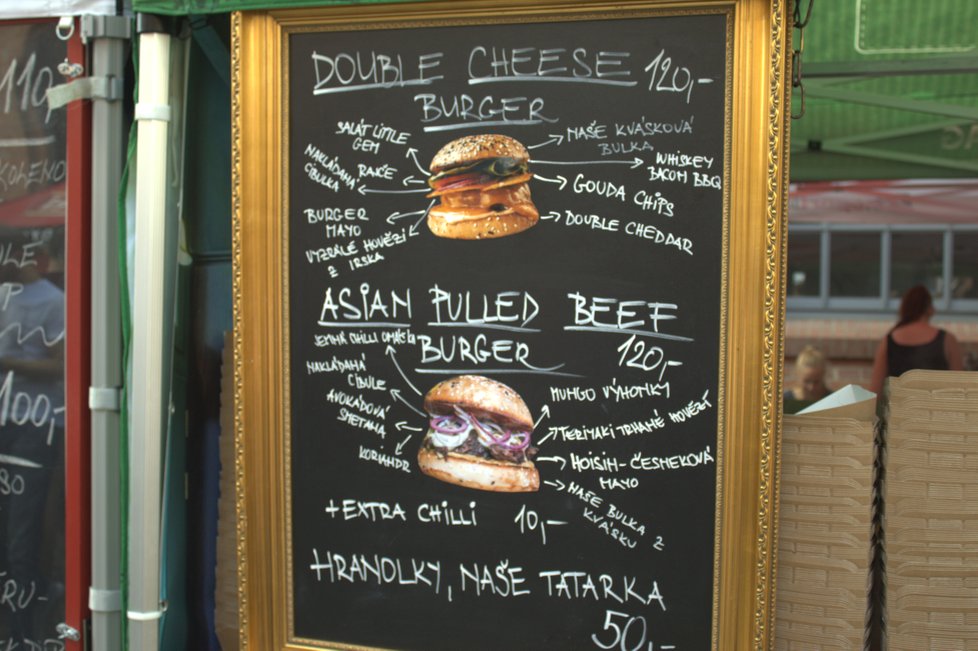 DOUBLE CHEESE 120,-
BURGER
SALÁT LITTLE
GEM
RAJČE
NAKLÁDANÁ
CIBULKA
BURGER
MAYO
VYZRÁLÉ HOVĚZÍ
Z IRSKA
NAŠE KVÁSKOVÁ
BULKA
WHISKEY
BACOM BBQ
GOUDA CHIPS
DOUBLE CHEDDAR
ASIAN PULLED BEEF
BURGER 120,-
JEMNÁ CHILLI OMÁČKA
NAKLÁDANÁ
CIBULE
AVOKÁDOVÁ
SMETANA
KORIANDR
MUNGO VÝHONKY
TERIYAKI TRHANÉ HOVĚZÍ
HOISIN-ČESNEKOVÁ
MAYO
NAŠE BULKA Z
KVÁSKU
+EXTRA CHILLI 10,-
HRANOLKY, NAŠE TATARKA
50,-
110
KOLENO
100,-